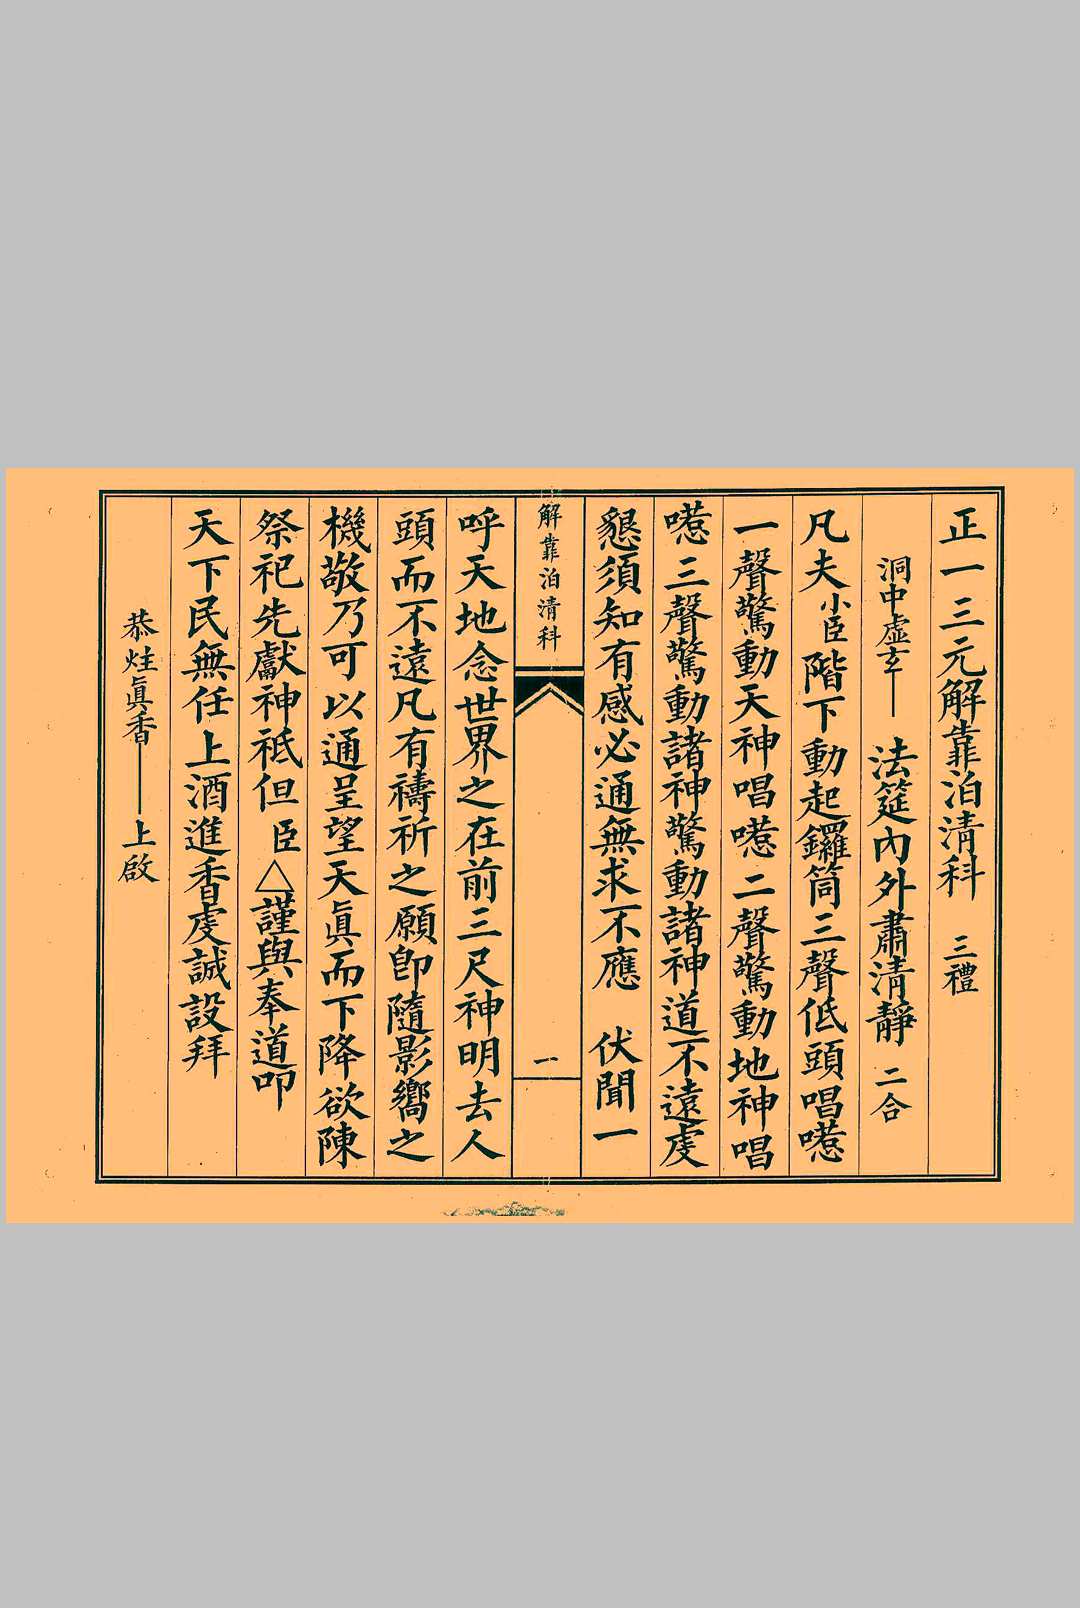 正一三元解靠泊清科　三禮
洞中虛玄——　法筵內外肅清靜　二合
凡夫小臣階下動起鑼筒三聲低頭唱喏
一聲驚動天神唱喏二聲驚動地神唱
喏三聲驚動諸神驚動諸神道不遠虔
懇須知有感必通無求不應　伏聞一
解靠泊清科
一
呼天地念世界之在前三尺神明去人
頭而不遠凡有禱祈之願卽隨影嚮之
機敬乃可以通呈望天眞而下降欲陳
祭祀先獻神祗但臣△謹與奉道叩
天下民無任上酒進香虔誠設拜
恭炷眞香——上啟